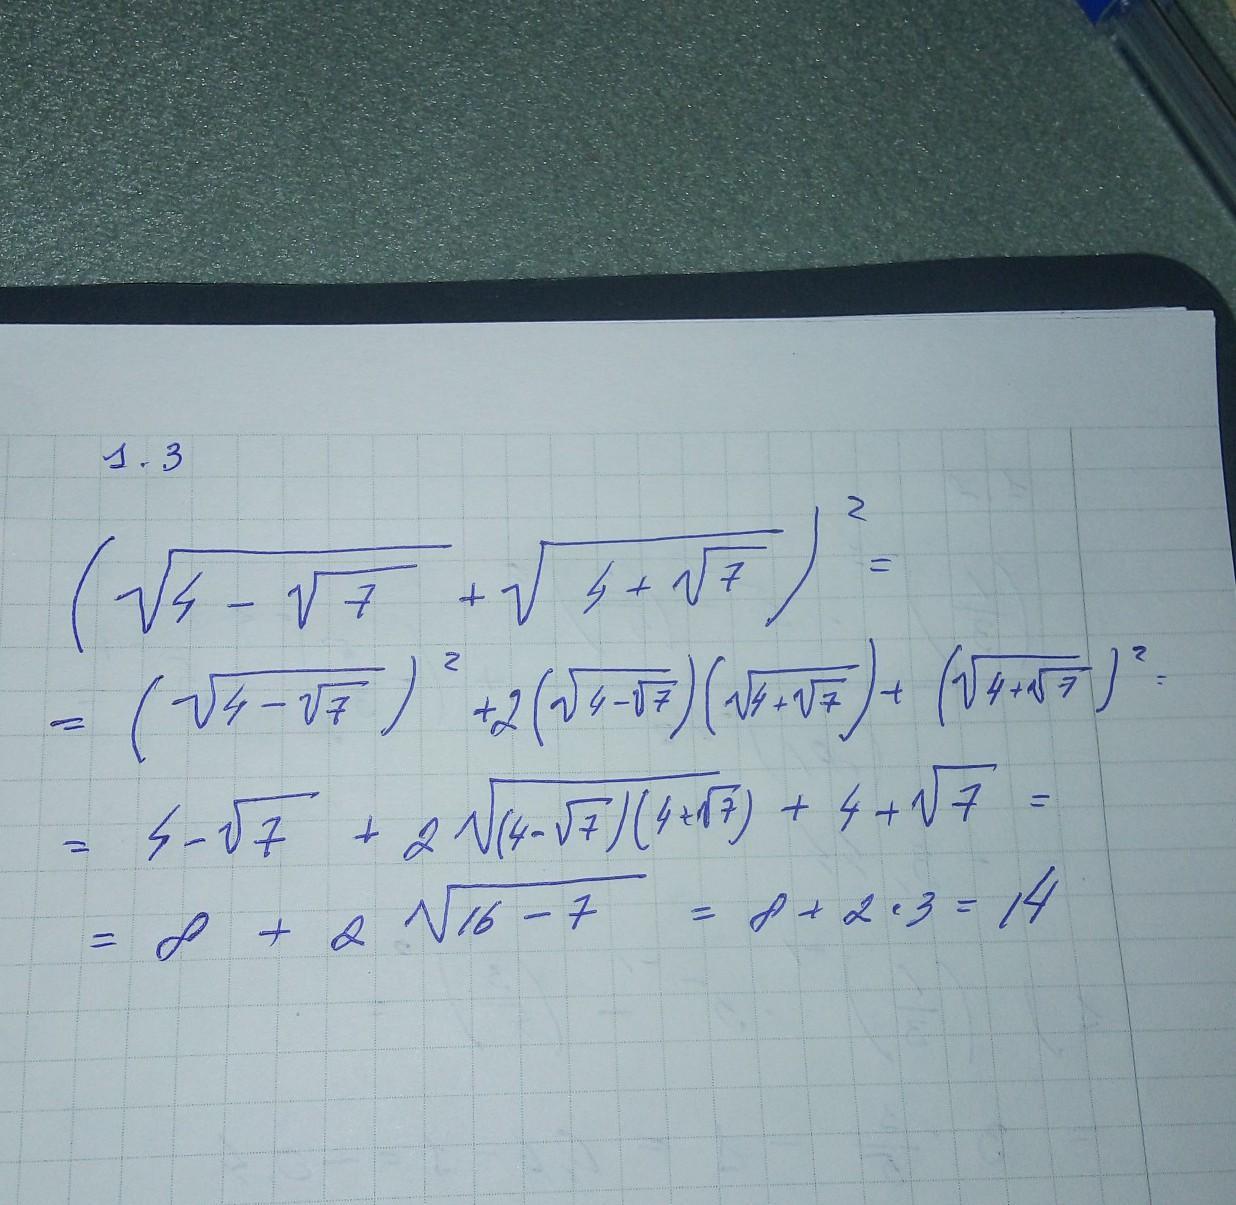 1.3
(√(4 - √7) + √(4 + √7))² =
= (√(4 - √7))² + 2(√(4 - √7))(√(4 + √7)) + (√(4 + √7))² =
= 4 - √7 + 2√((4 - √7)(4 + √7)) + 4 + √7 =
= 8 + 2√(16 - 7) = 8 + 2·3 = 14